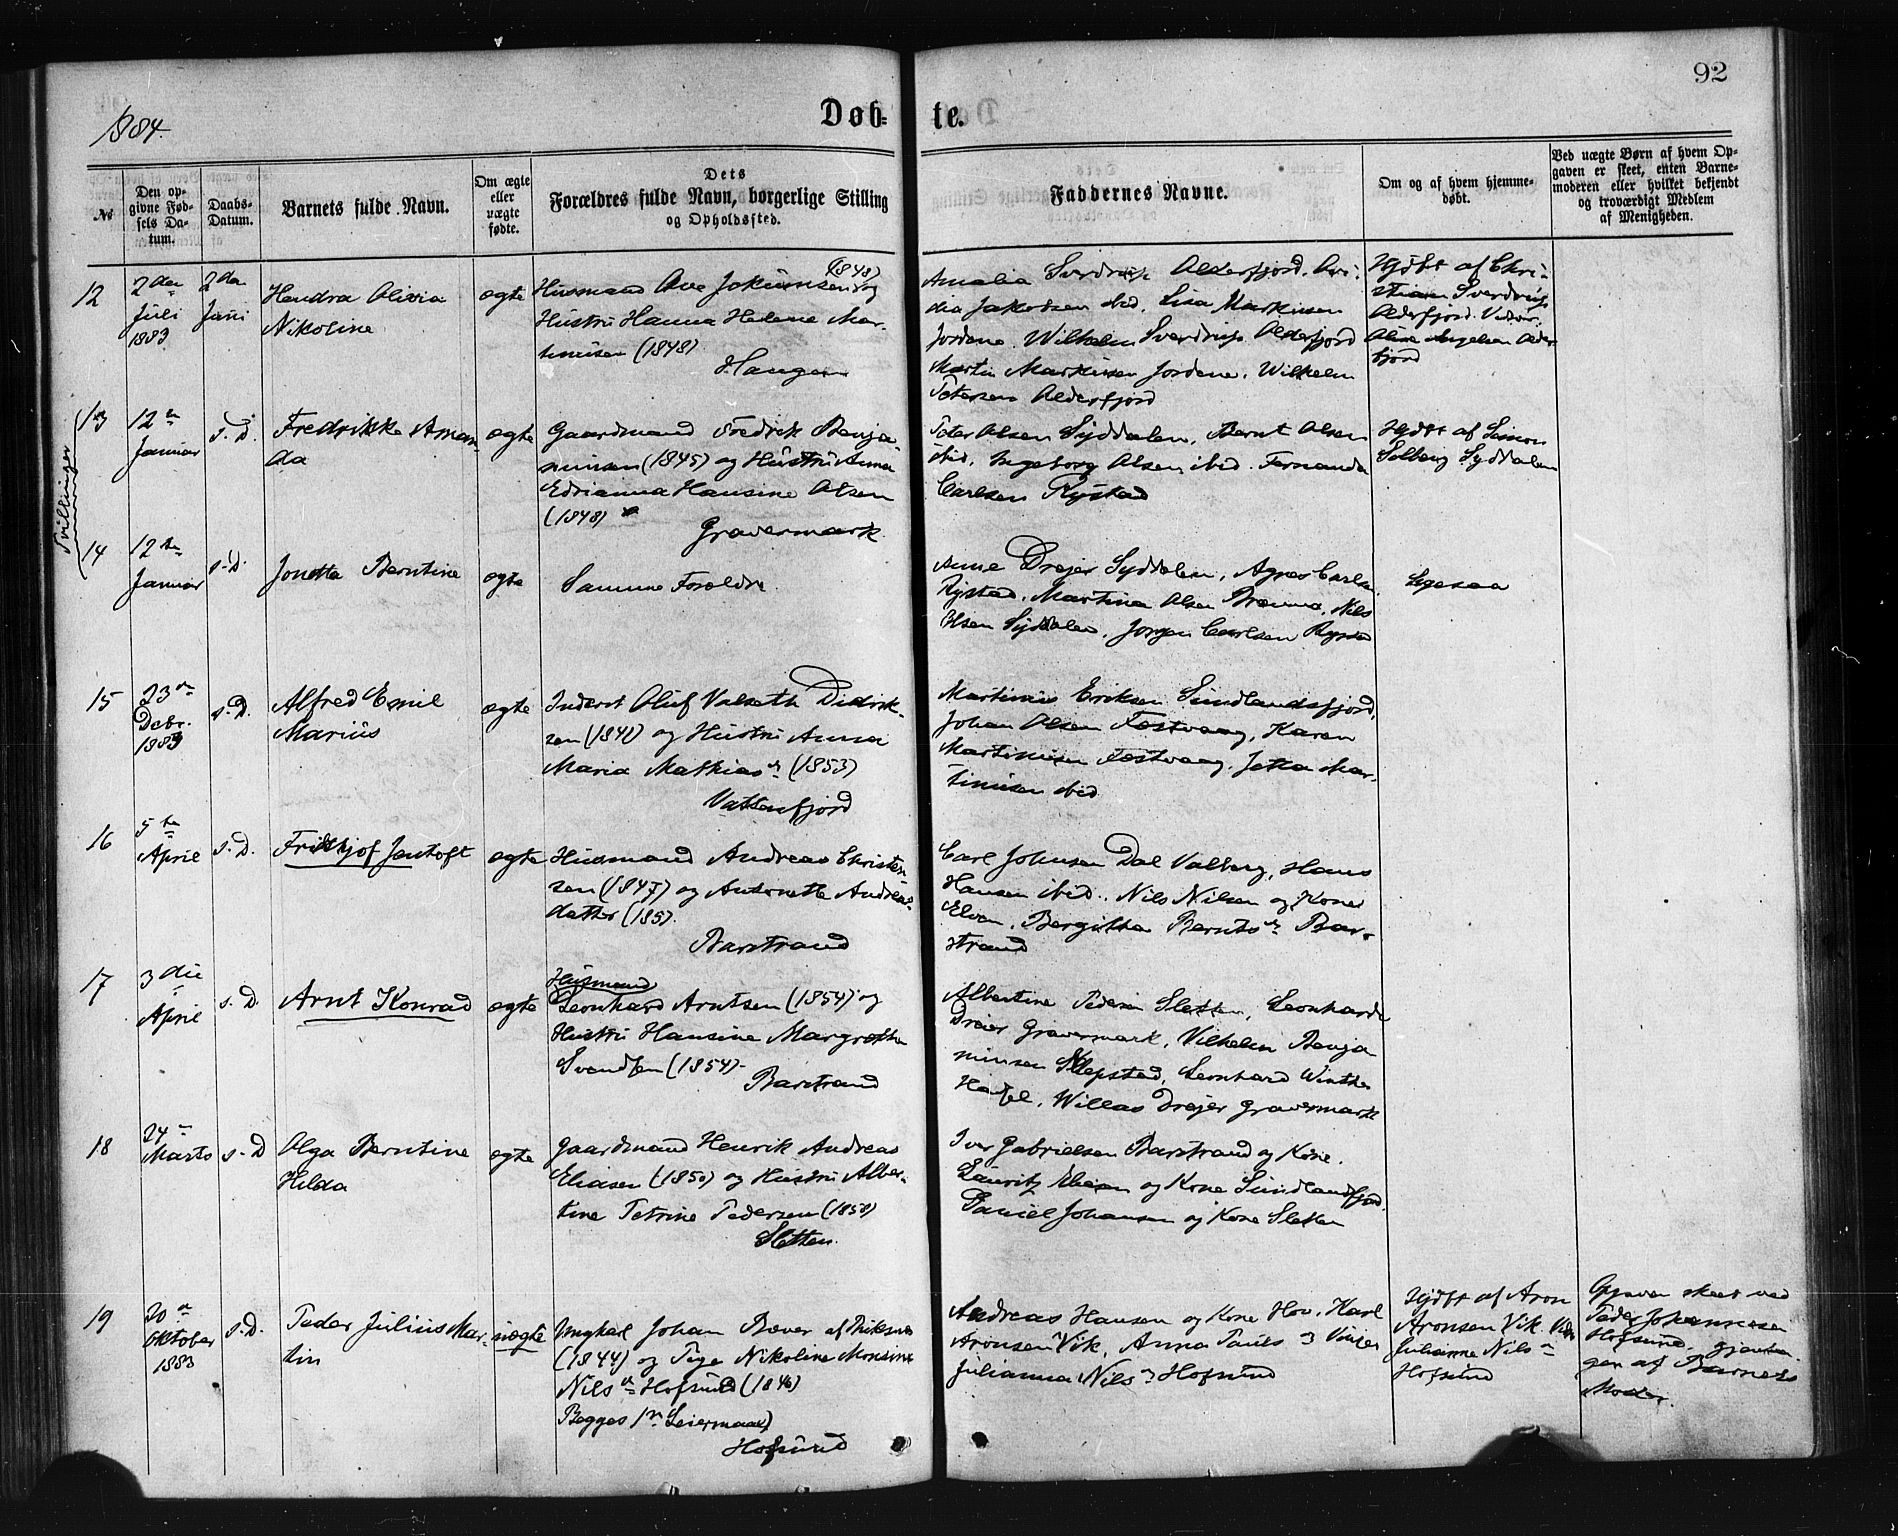 92
1884.
Døb-
te.
№
Den op-
givne Fød-
sels Da-
tum.
Daabs-
Datum.
Barnets fulde Navn.
Om ægte
eller
uægte
fødte.
Dets
Forældres fulde Navn, borgerlige Stilling
og Opholdsted.
Faddernes Navne.
Om og af hvem hjemme-
døbt.
Ved uægte Børn af hvem Op-
gaven er skeet, enten Barne-
moderen eller hvilket bekjendt
og troværdigt Medlem
af Menigheden.
12
2den
Juli
1883
2den
Juni
Hendra Olivia
Nikoline
ægte
(1848)
Husmand Ove Jakobsen og
Hustru Hanna Helene Mar-
tinusen (1848)
Haugen
Amalia Sverdrup Alderfjord.
dia Jakobsen ibid. Lisa Markusen
Jordene. Wilhelm Sverdrup Alderfjord
Martin Markusen Jordene. Wilhelm
Petersen Alderfjord
Hjdbt af Chri-
stian Sverdrup
Alderfjord.
Angelsen Alder-
fjord
Tvillinger
13
12te
Januar
s. D.
Fredrikke Aman-
da
ægte
Gaardmand Fredrik Benja-
minsen (1845) og Hustru Anna
Edrianna Hansine Olsen
(1848)
Gravermark
Peter Olsen Syddalen, Bernt Olsen
ibid. Ingeborg Olsen ibid. Fernanda
Carlsen Rystad
Hjdbt af Simon
Solberg Syddalen
14
12te
Januar
s. D.
Jonetta Berntine
ægte
Samme Forældre
Anne Drejer Syddalen, Agnes Carlsen
Rystad. Martina Olsen Brenna. Nils
Olsen Syddalen. Jørgen Carlsen Rystad
Ligesaa
15
23de
Debr.
1883
s. D.
Alfred Emil
Marius
ægte
Inderst Oluf Valseth Didrik-
sen (1841) og Hustru Anna
Maria Mathiasdr (1853)
Vatsenfjord
Martinus Eriksen Sundlandsfjord,
Johan Olsen Festvaag, Karen
Martinusen Festvaag, Jetta Mar-
tinusen ibid
16
5te
April
s. D.
Fridthjof Jentoft
ægte
Husmand Andreas Christen-
sen (1847) og Antonette Andreas-
datter (185).
Barstrand
Carl Johnsen Dal Valberg, Hans
Hansen ibid. Nils Nilsen og Kone
Elven. Bergitte Berntsdr Bar-
strand
17
3die
April
s. D.
Arnt Konrad
ægte
Husmand
Leonhard Arntsen (1854) og
Hustru Hansine Margrethe
Svendsen (1854)
Barstrand
Albertine Pedersen Sletten, Leonharda
Dreier Gravermark, Vilhelm Benja-
minsen Klepstad, Leonhard Winther
Willas Drejer Gravermark
18
24de
Marts
s. D
Olga Berntine
Hilda
ægte
Gaardmand Henrik Andreas
Eliasen (1850) og Hustru Alber-
tine Petrine Pedersen (1858)
Sletten.
Iver Gabrielsen Barstrand og Kone.
Lauritz Eliasen og Kone Sundlandsfjord.
Daniel Johansen og Kone Sletten
19
20de
Oktober
1883
s. D.
Peder Julius Mar-
tin
uægte
Ungkarl Johan Bæver af Buksnæs
(1844) og Pige Nikoline Monsine
Nilsdr Hofsund (1846)
Begges 1ste Leiermaal)
Hofsund
Andreas Hansen og Kone Hov. Karl
Aronsen Vik, Anna Paulsdr
Julianna Nilsdr Hofsund
Hjdbt af Aron
Aronsen Vik.
Julianne Nilsdr
Hofsund
Opgaven skeet ved
Peder Johannesen
Hofsund, gjenta-
gen af Barnets
Moder.